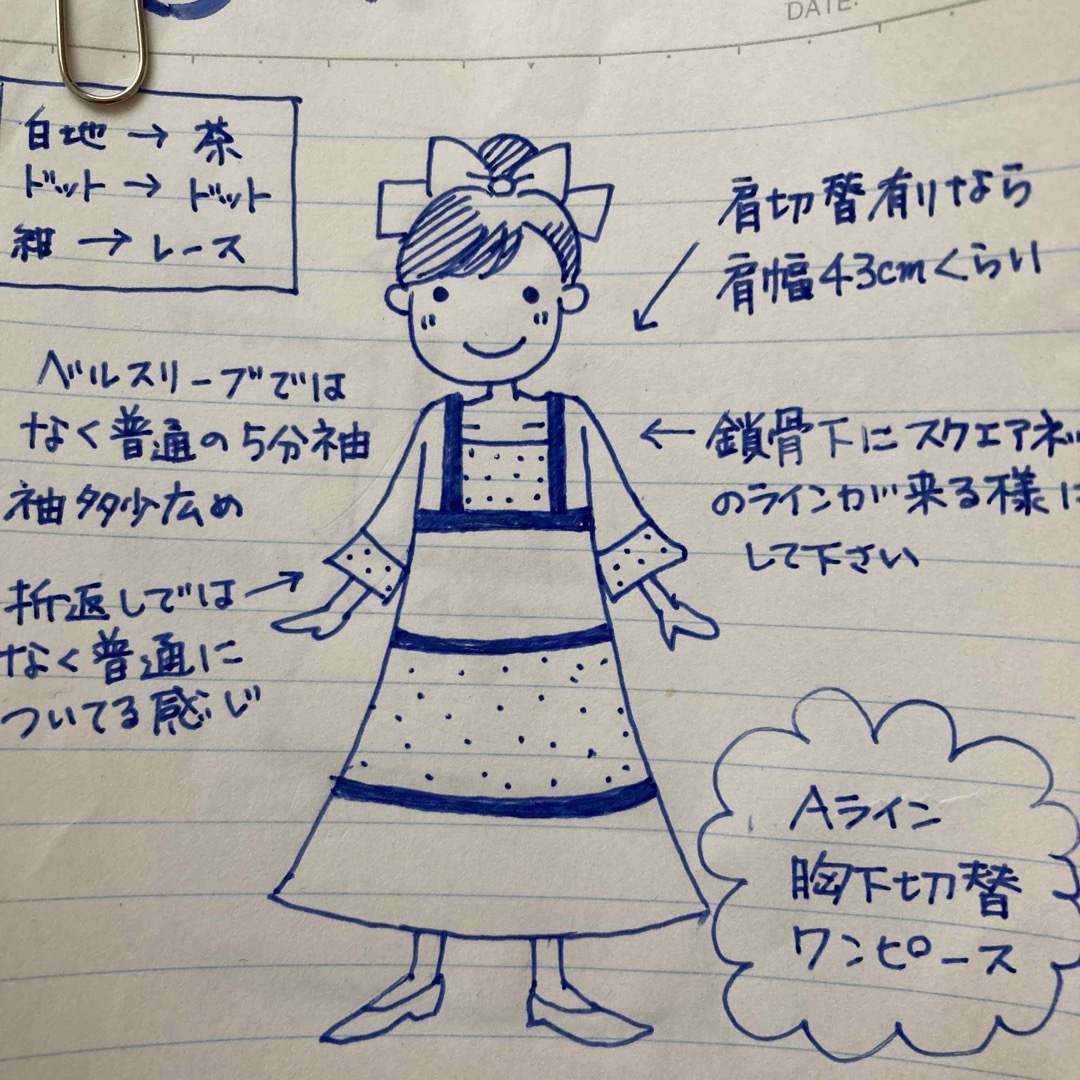 DATE.
白地 → 茶
ドット → ドット
紺 → レース
肩切替有りなら
肩幅43cmくらい
ベルスリーブでは
なく普通の5分袖
袖多少広め
← 鎖骨下にスクエアネッ
のラインが来る様に
して下さい
折返しでは
なく普通に
ついてる感じ
Aライン
胸下切替
ワンピース